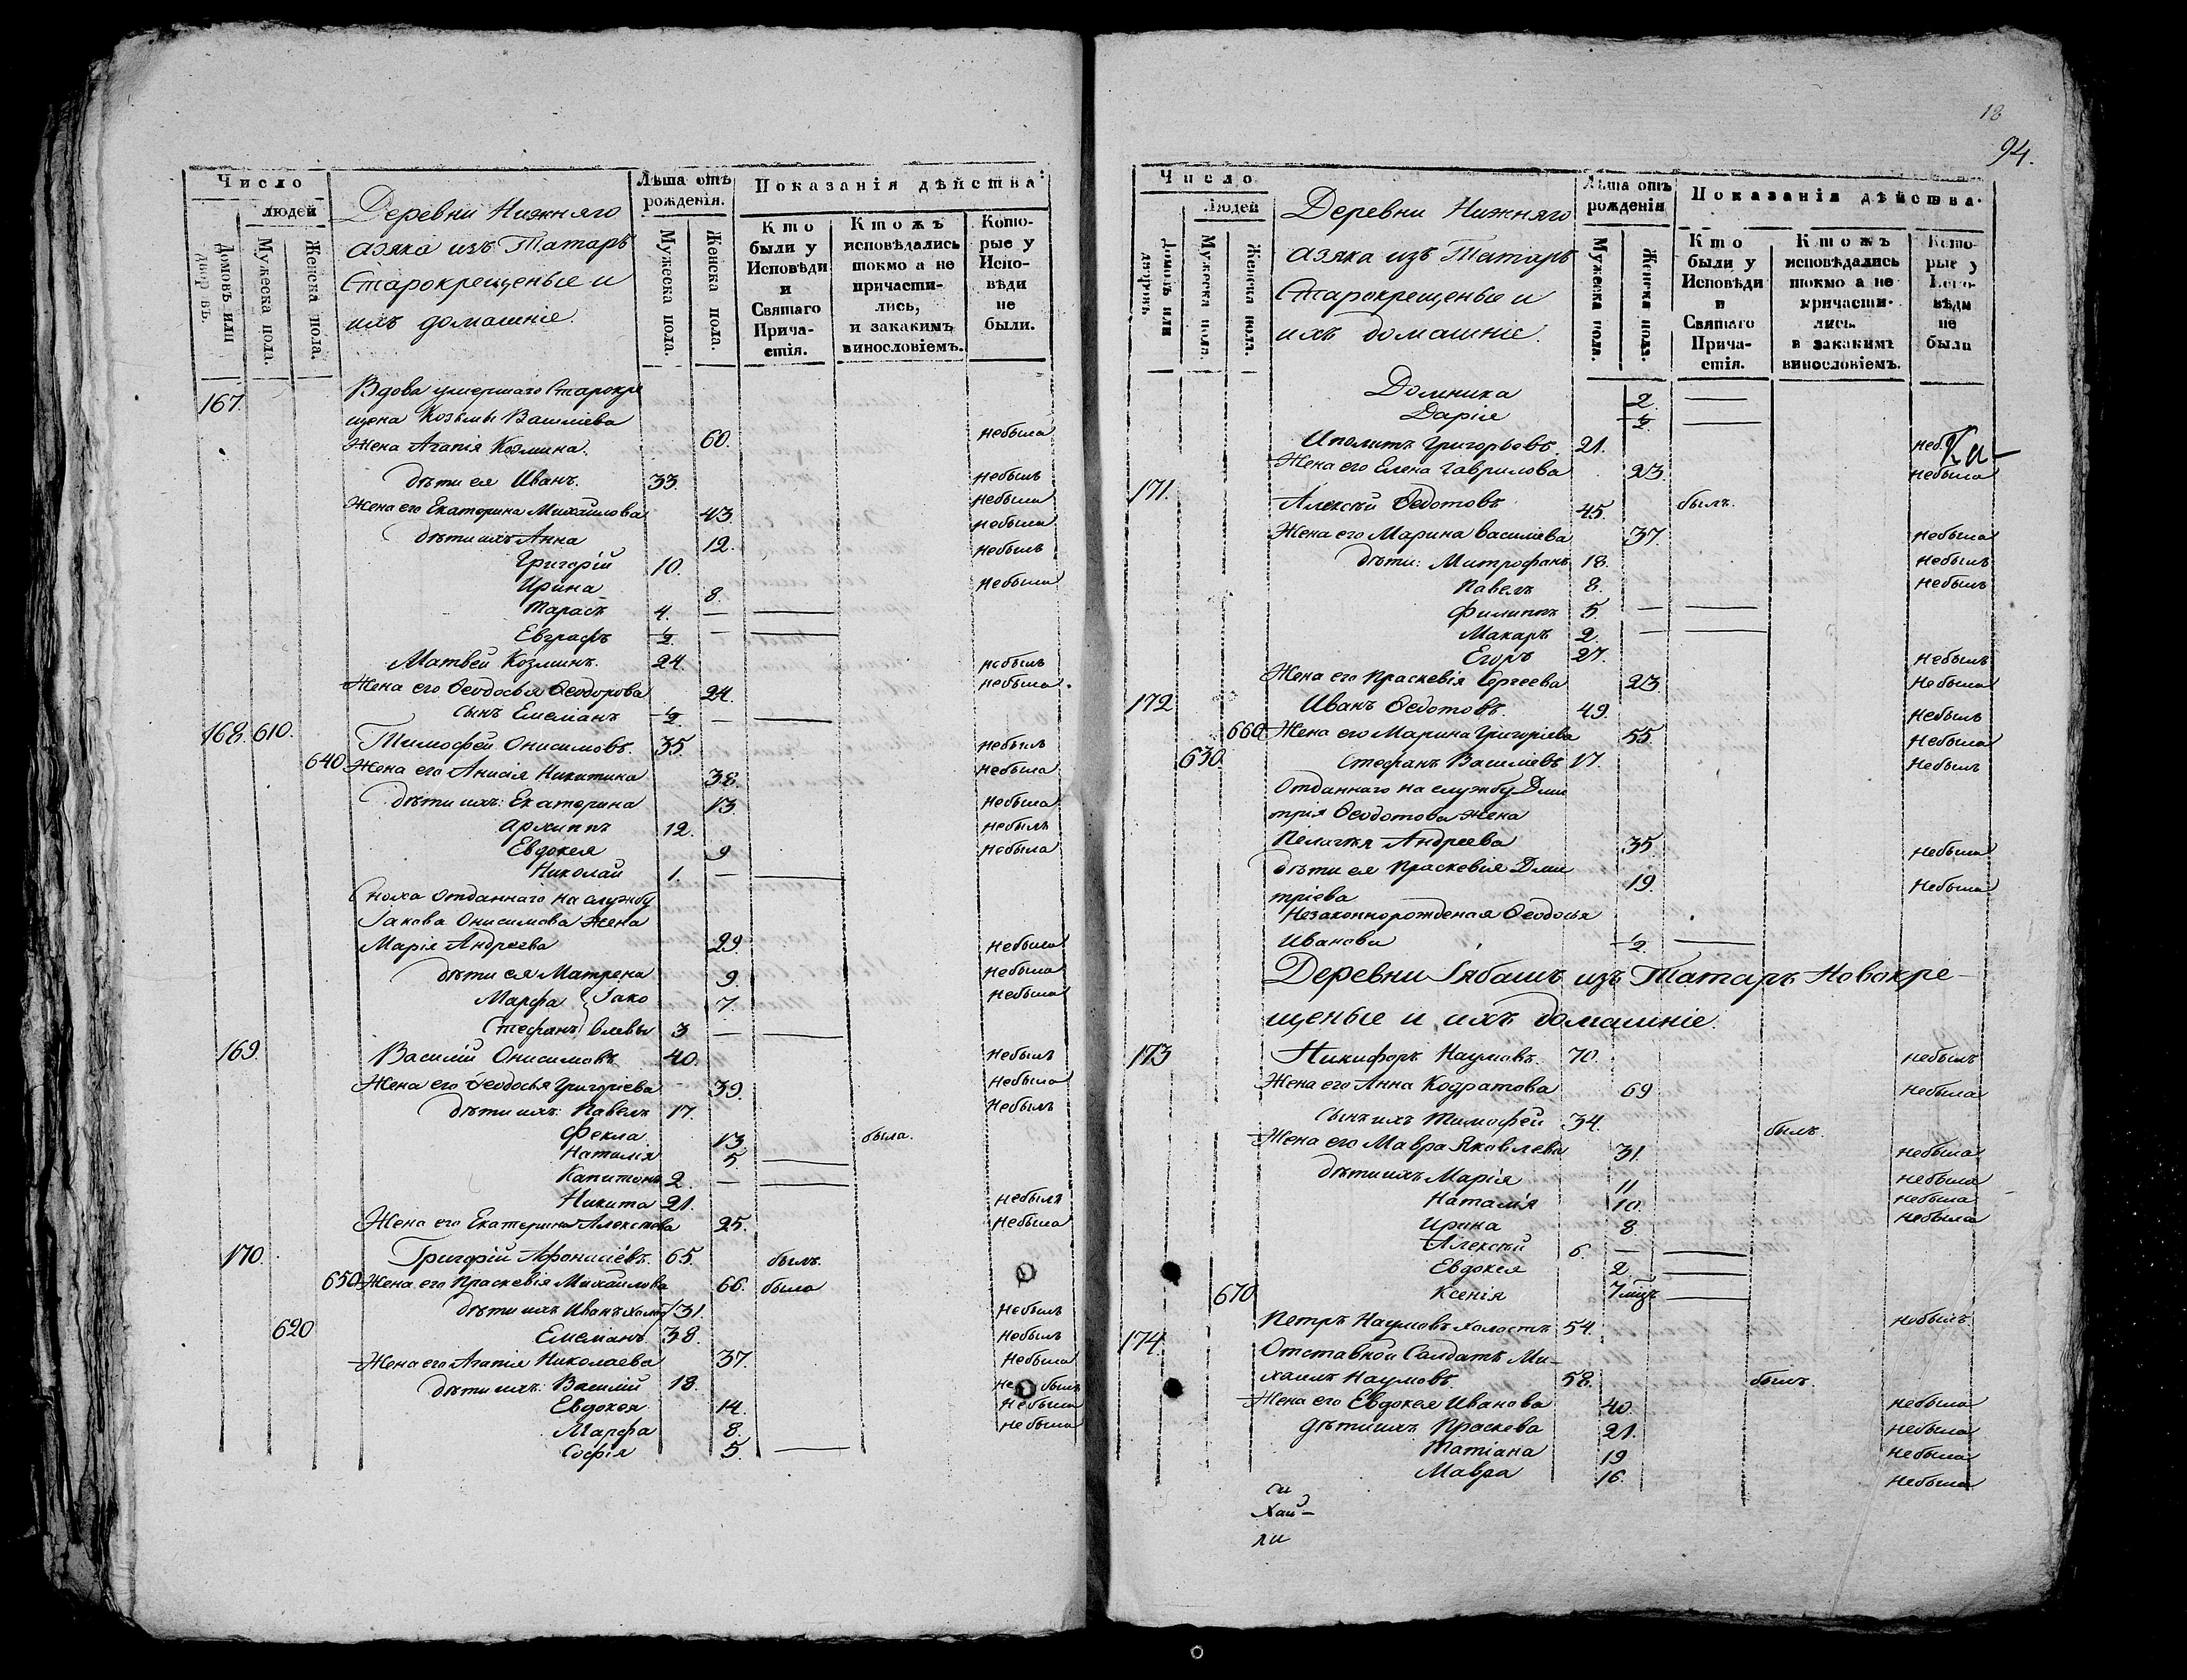 Число
людей
Домовъ или дворовъ.
Мужеска пола.
Женска пола.
Деревни Нижняго
азяка изъ Татаръ
Старокрещеные и
ихъ домашніе.
Лѣта отъ рожденія.
Мужеска пола.
Женска пола.
Показанія дѣйства
Кто были у Исповѣди и Святаго Причастія.
Ктожъ исповѣдались токмо а не причастились, и закакимъ винословіемъ.
Которые у Исповѣди не были.
167. Вдова умершаго Старокре
щена Козьмы Василіева
Жена Агапія Козмина. 60. небыла
дѣти ея Иванъ. 33. небылъ
Жена его Екатерина Михайлова 43. небыла
дѣти ихъ Анна 12. небыла
Григорій 10. небылъ
Ирина 8. небыла
Тарасъ 4. — —
Евграфъ ½ — —
Матвей Козминъ. 24. небылъ
Жена его Ѳеодосья Ѳеодорова 24. небыла.
сынъ Емеліанъ ½ — —
168. 610. Тимофей Онисимовъ. 35. небылъ
640 Жена его Анисія Никитина 38. небыла
дѣти ихъ: Екатерина 13. небыла
Архиппъ 12. небылъ
Евдокея 9 небыла
Николай 1. — —
Сноха отданнаго на службу
Іакова Онисимова жена
Марія Андреева 29. небыла
дѣти ея Матрена 9. небыла
Марфа Іако 7. небыла
Стефанъ влевы 3 — —
169. Василій Онисимовъ 40. небылъ
Жена его Ѳеодосья Григоріева 39. небыла
дѣти ихъ: Павелъ 17. небылъ
Фекла 13. была.
Наталія 5. —
Капитонъ 2. — —
Никита 21. небылъ
Жена его Екатерина Алексѣева 25. небыла
170. Григорій Афонасіевъ. 65. былъ.
650 Жена его Праскевія Михайлова 66. была
дѣти ихъ Иванъ холос 31. небылъ
620 Емеліанъ. 38. небылъ
Жена его Агапія Николаева 37. небыла
дѣти ихъ: Василій 18. не былъ
Евдокея 14. небыла
Марфа 8. небыла
Софія 5. —
18
94.
Число
Людей
Домовъ или дворовъ
Мужеска пола.
Женска пола.
Деревни Нижняго
азяка изъ Татаръ
Старокрещеные и
ихъ домашніе.
Лѣта отъ рожденія
Мужеска пола.
Женска пола.
Показанія дѣйства.
Кто были у Исповѣди и Святаго Причастія.
Ктожъ исповѣдались токмо а не причастились. и закакимъ винословіемъ.
Которые у Исповѣди не были
Домника 2. —
Дарія ½ —
Иполитъ Григорьевъ. 21. неб
Жена его Елена Гаврилова 23. небыла
171. Алексѣй Ѳедотовъ 45. былъ.
Жена его Марина Василіева 37. небыла
дѣти: Митрофанъ 18. небылъ
Павелъ 8. небылъ
Филиппъ 5. — —
Макаръ 2. — —
Егоръ 27. небылъ
Жена его Праскевія Сергеева 23. небыла
172 Иванъ Ѳедотовъ. 49. небылъ
660 Жена его Марина Григоріева 55. небыла
630 Стефанъ Василіевъ 17. небылъ
Отданнаго на службу Дми
трія Ѳеодотова жена
Пелагѣя Андреева 35. небыла
дѣти ея Праскевія Дми
тріева 19. небыла
Незаконнорожденая Ѳеодосья
Иванова ½ —
Деревни Іябашъ изъ Татаръ Новокре-
щеные и ихъ домашніе.
173 Никифоръ Наумовъ. 70. небылъ
Жена его Анна Кодратова 69 небыла
сынъ ихъ Тимофей 34. былъ.
Жена его Мавра Яковлева 31. небыла
дѣти ихъ Марія 11 небыла
Наталія 10. небыла
Ирина 8. небыла
Алексѣй 6. — —
Евдокея 2 —
670 Ксенія 7 мцъ —
Петръ Наумовъ холостъ 54. небылъ
174. Отставной Салдатъ Ми-
хаилъ Наумовъ. 58. былъ.
Жена его Евдокея Иванова 40. небыла
дѣти ихъ Праскева 21. небыла
Татіана 19 небыла
Мавра 16. небыла
си
Хай-
ли